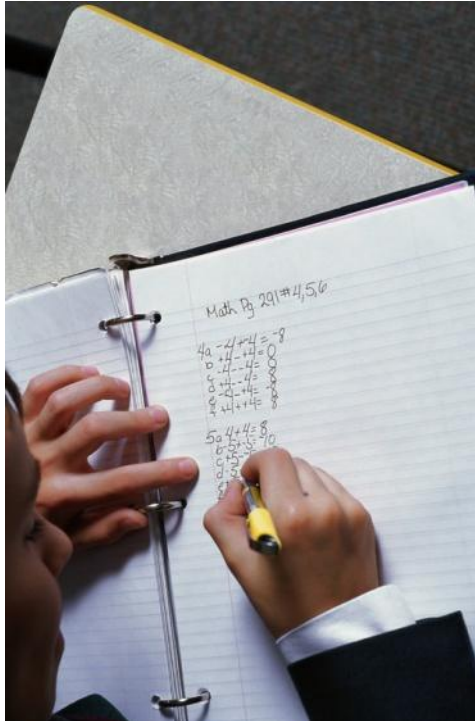 Math Pg. 291 #4,5,6
4a -4+-4=-8
b +4-+4=0
c -4--4=0
d +4--4=8
e -4-+4=-8
f +4++4=8
5a 4+4=8
b -5+-5=-10
c -5-5=
d -5-